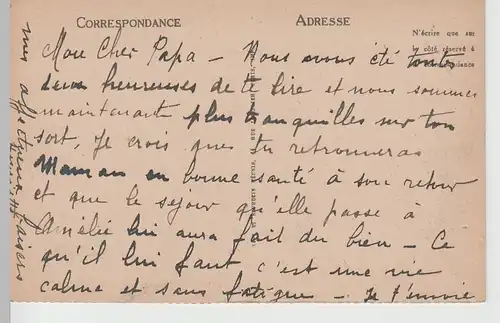 CORRESPONDANCE
ADRESSE
N'écrire que sur
le côté réservé à
Mon Cher Papa - Nous avons été toutes
deux heureuses de te lire et nous sommes
maintenant plus tranquilles sur ton
sort, Je crois que tu retrouveras
Maman en bonne santé à son retour
et que le sejour qu'elle passe à
Amélie lui aura fait du bien - Ce
qu'il lui faut c'est une vie
calme et sans fatigue - Je t'envoie
mes affectueux baisers